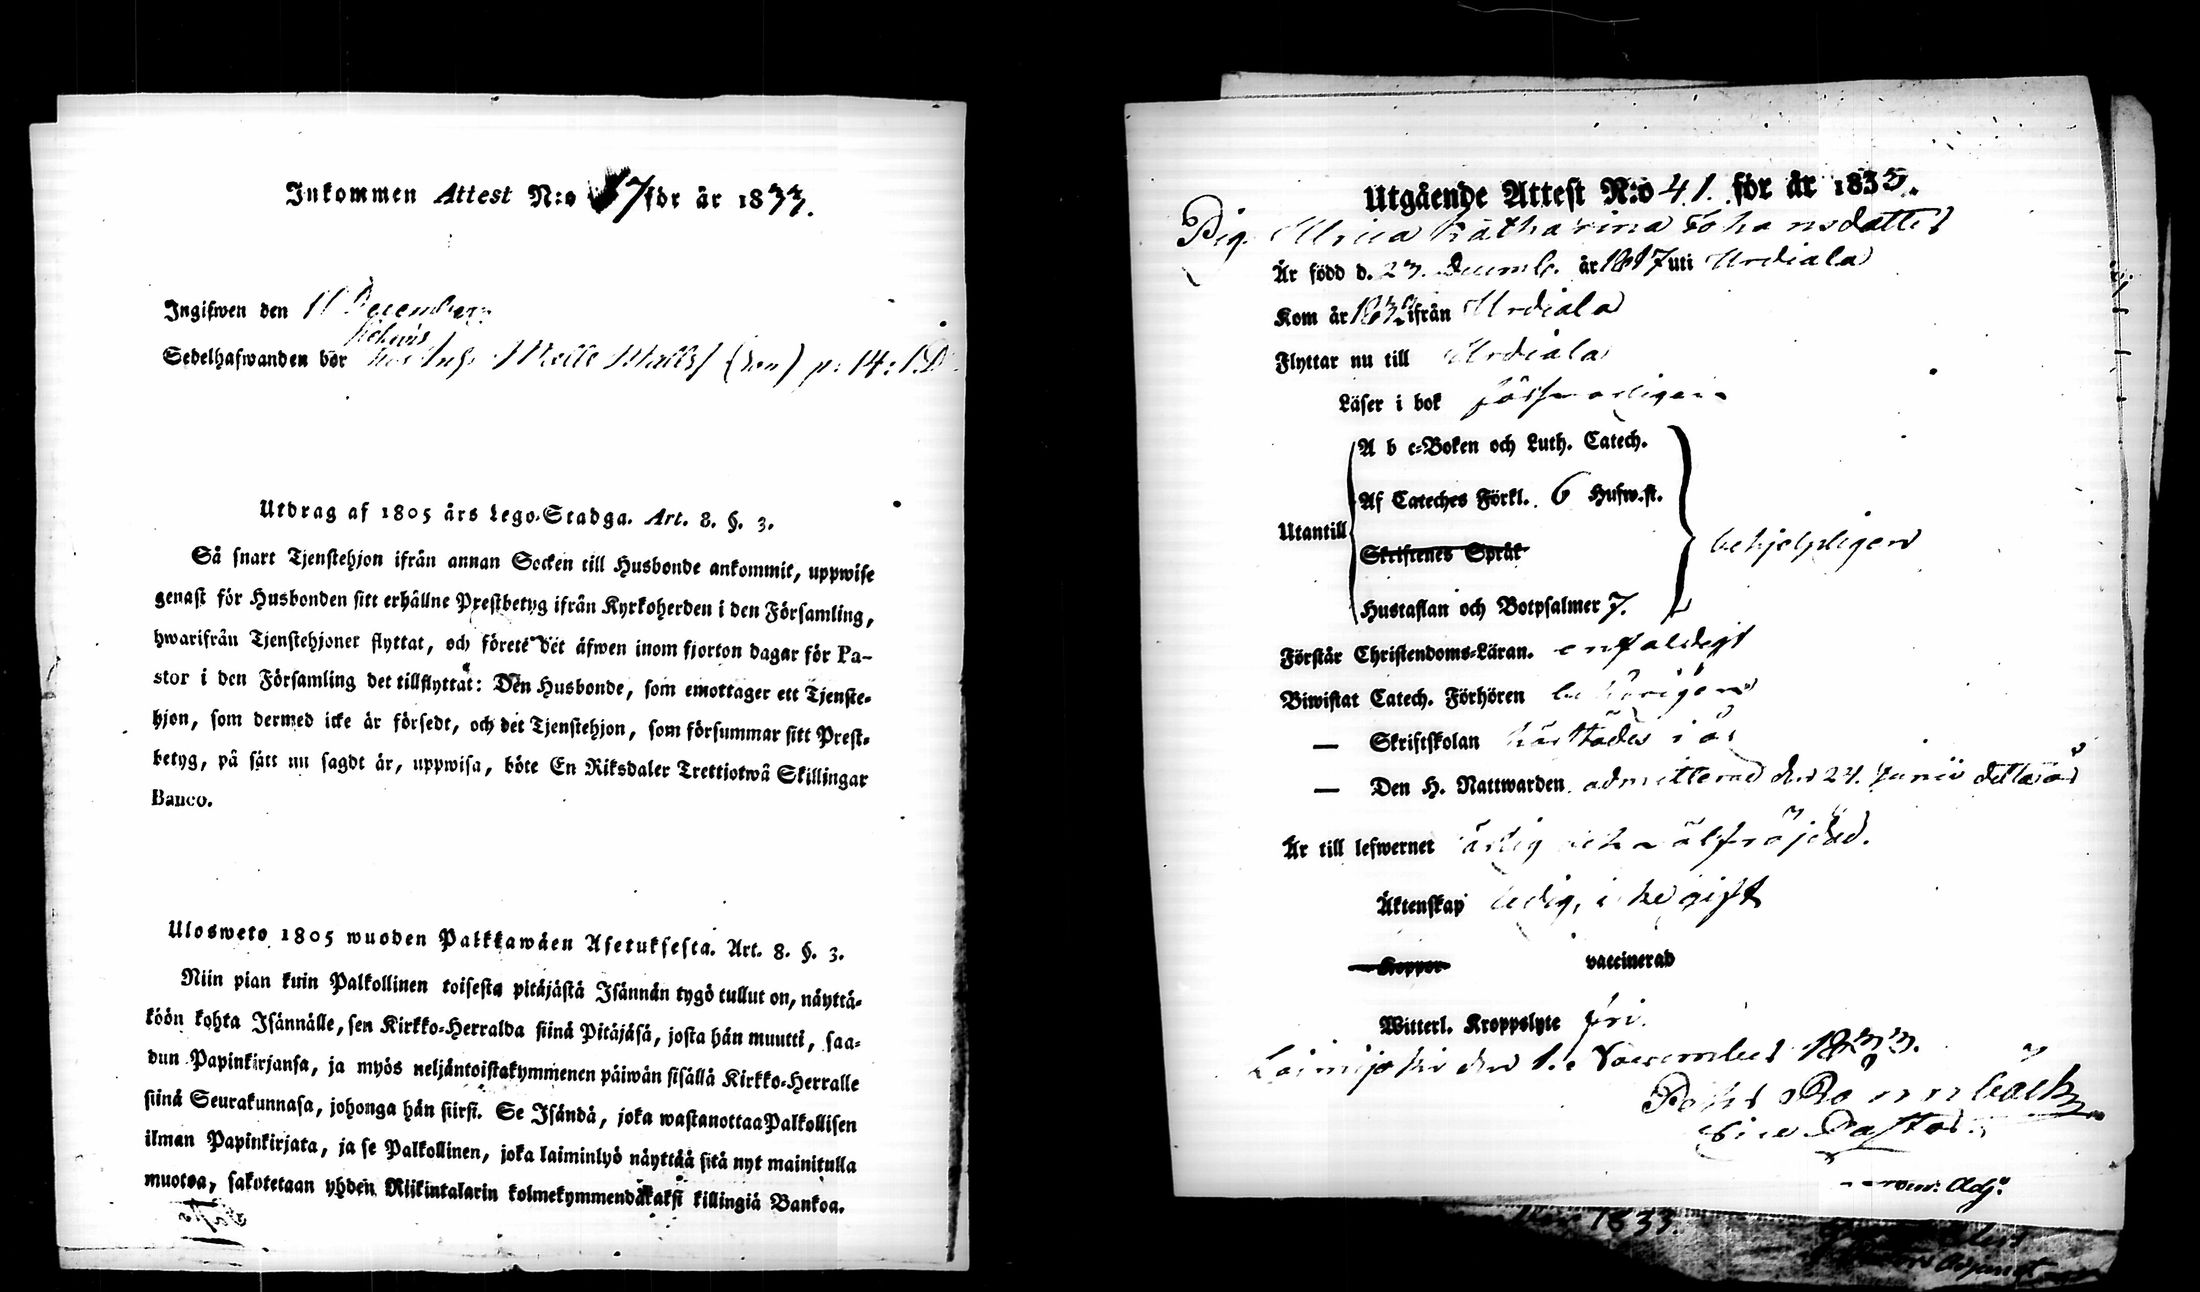 Inkommen Attest N:o 57 för år 1833.
Ingifwen den 11 December
Sedelhafwanden bör hos Matts (son) p: 14:
Utdrag af 1805 års Lego-Stadga. Art. 8. §. 3.
Så snart Tjenstehjon ifrån annan Socken till Husbonde ankommit, uppwise
genast för Husbonden sitt erhållne Prestbetyg ifrån Kyrkoherden i den Församling,
hwarifrån Tjenstehjonet flyttat, och förete det äfwen inom fjorton dagar för Pa-
stor i den Församling det tillflyttat: Den Husbonde, som emottager ett Tjenste-
hjon, som dermed icke är försedt, och det Tjenstehjon, som försummar sitt Prest-
betyg, på sätt nu sagdt är, uppwisa, böte En Riksdaler Trettiotwå Skillingar
Banco.
Ulosweto 1805 wuoden Palkkawäen Asetuksesta. Art. 8. §. 3.
Niin pian kuin Palkollinen toisesta pitäjästä Isännän tygö tullut on, näyttä-
köön kohta Isännälle, sen Kirkko-Herralda siinä Pitäjäsä, josta hän muutti, saa-
dun Papinkirjansa, ja myös neljäntoistakymmenen päiwän sisällä Kirkko-Herralle
siinä Seurakunnasa, johonga hän siirsi. Se Isändä, joka wastanottaa Palkollisen
ilman Papinkirjata, ja se Palkollinen, joka laiminlyö näyttää sitä nyt mainitulla
muotoa, sakotetaan yhden Riikintalarin kolmekymmendäkaksi killingiä Bankoa.
Utgående Attest N:o 41. för år 1833.
Pig. Ulrica Katharina Johansdotter
Är född d. 23. Decemb. år 1817 uti Urdiala
Kom år 1832 ifrån Urdiala
Flyttar nu till Urdiala
Läser i bok försvarligen
A b c-Boken och Luth. Catech.
Af Cateches Förkl. 6 Hufw.st.
Utantill
Skriftenes Språk
behjelpligen
Hustaflan och Botpsalmer 7.
Förstår Christendoms-Läran. enfaldigt
Biwistat Catech. Förhören behörigen
— Skriftskolan härstädes i år
— Den H. Nattwarden admitterad den 24. Junii detta år
Är till lefwernet ärlig och välfräjdad.
Äktenskap ledig, icke gift
Koppor vaccinerad
Witterl. Kroppslyte fri.
Loimijoki den 1. November 1833.
Petter Rönnbäck
Vice Pastor.
Adj:
1833.
Adjunct